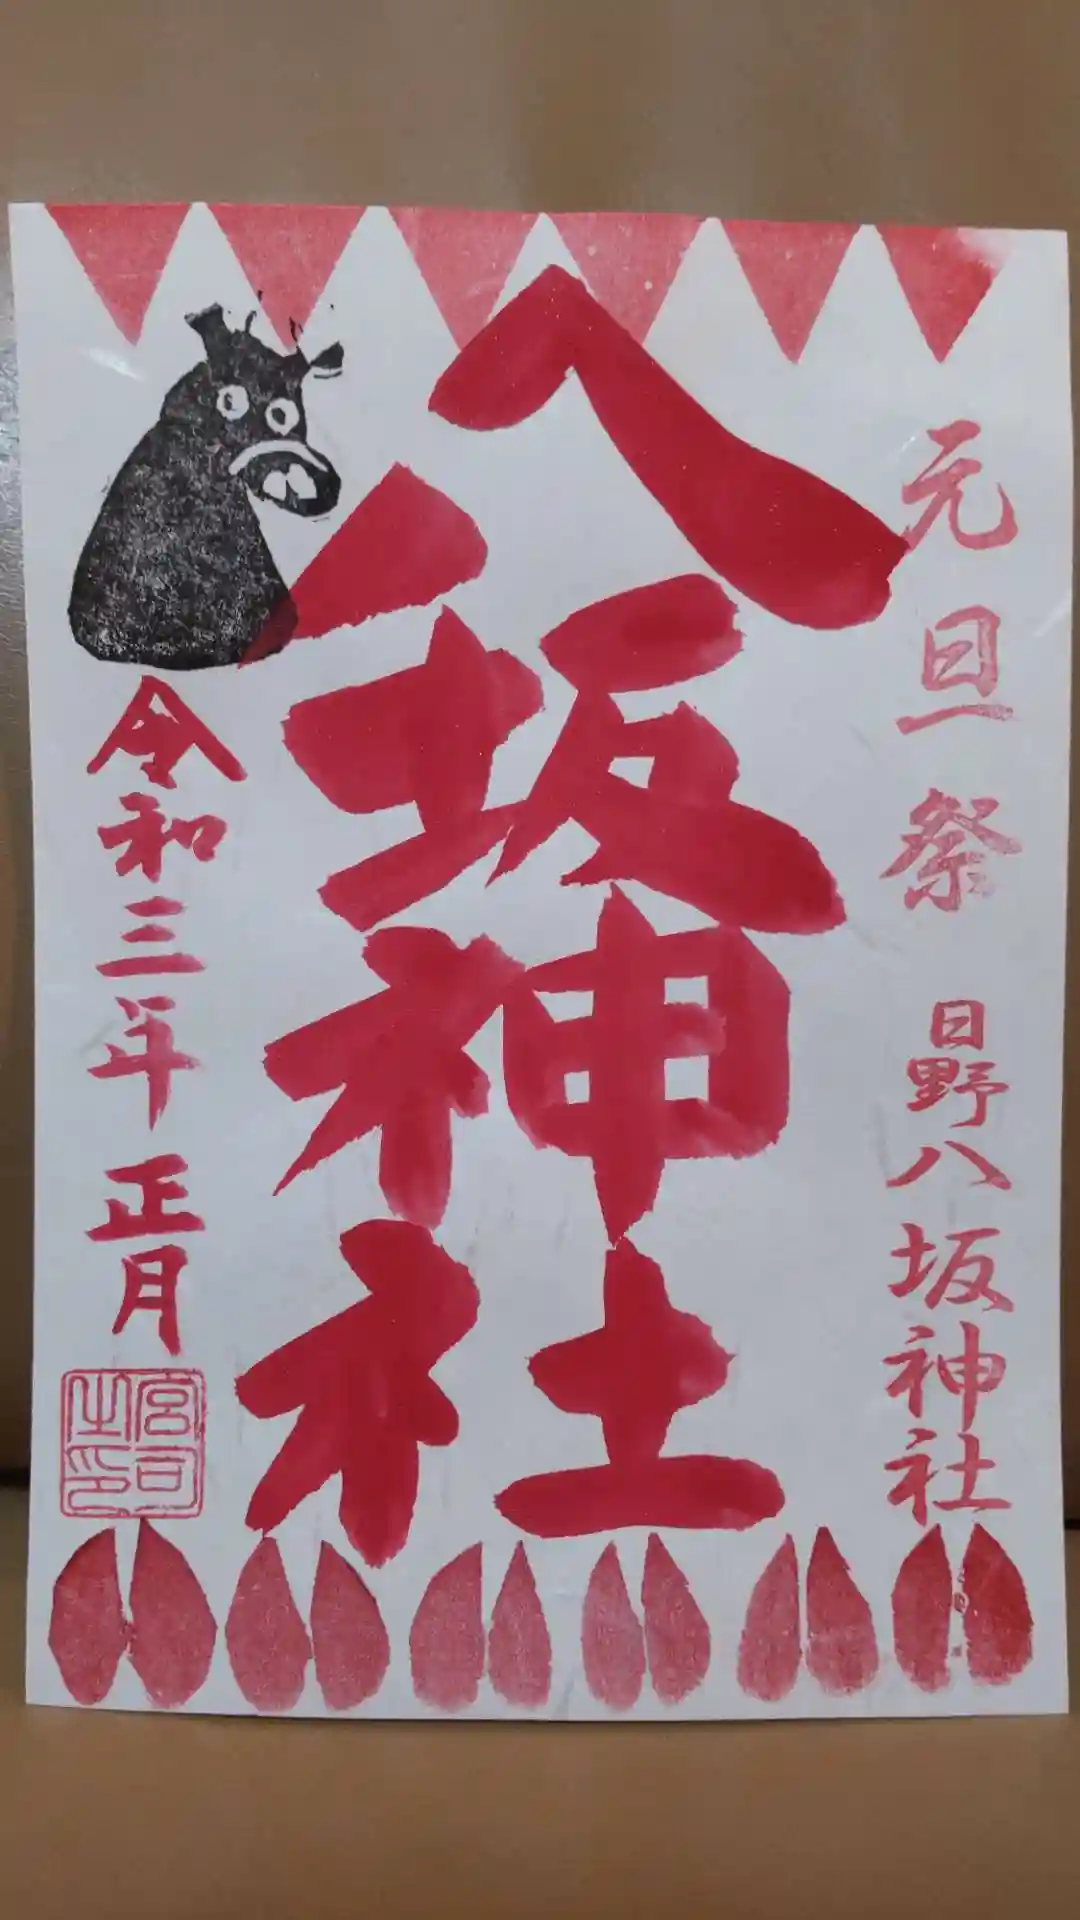 元旦祭 日野八坂神社
八坂神社
令和三年 正月
宮司
之印